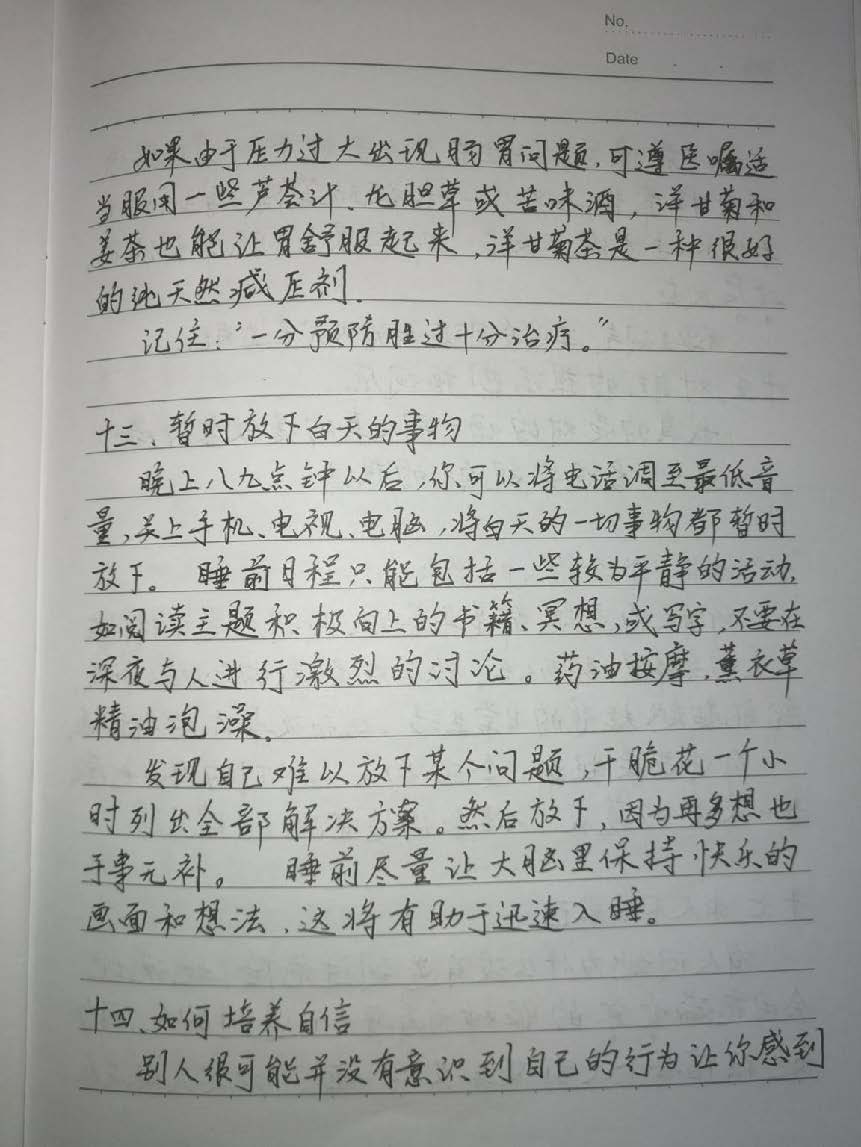 No.
Date
如果由于压力过大出现肠胃问题,可遵医嘱适
当服用一些芦荟汁、龙胆草或苦味酒,洋甘菊和
姜茶也能让胃舒服起来,洋甘菊茶是一种很好
的纯天然减压剂.
记住:“一分预防胜过十分治疗。”
十三、暂时放下白天的事物
晚上八九点钟以后,你可以将电话调至最低音
量,关上手机、电视、电脑,将白天的一切事物都暂时
放下。 睡前日程只能包括一些较为平静的活动,
如阅读主题积极向上的书籍、冥想,或写字,不要在
深夜与人进行激烈的讨论。药油按摩,薰衣草
精油泡澡。
发现自己难以放下某个问题,干脆花一个小
时列出全部解决方案。然后放下,因为再多想也
于事无补。 睡前尽量让大脑里保持快乐的
画面和想法,这将有助于迅速入睡。
十四、如何培养自信
别人很可能并没有意识到自己的行为让你感到